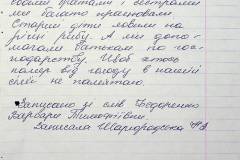 своїми братами і сестрами
ми багато працювали
Старші діти ловили на
річці рибу. А ми допо-
магали батькам по гос-
подарству. Щоб хтось
помер від голоду в нашій
сім'ї не пам'ятаю.
Записано зі слів Федоренко
Варвари Тимофіївни
Записала